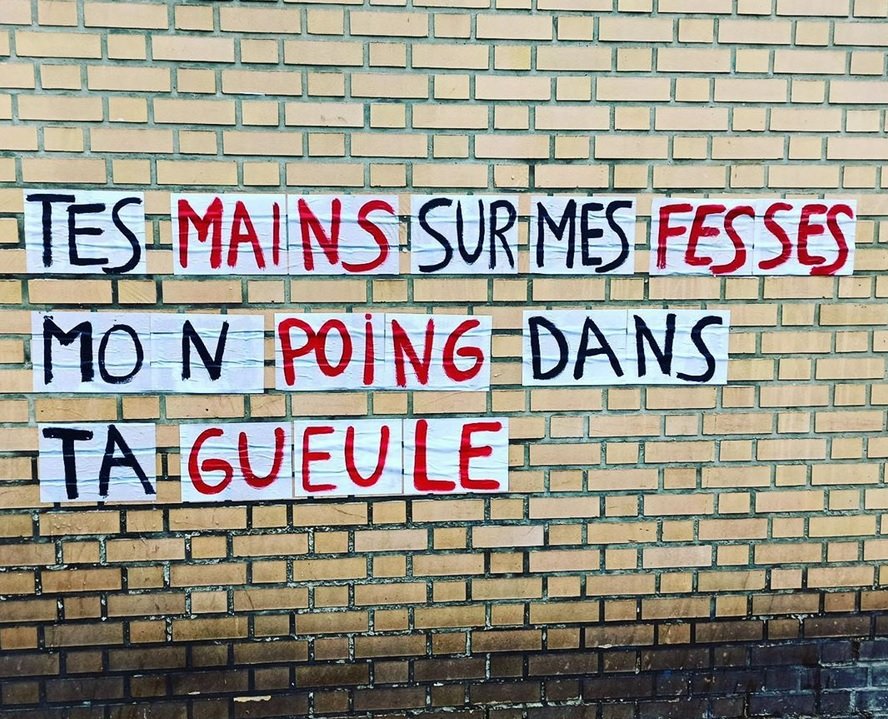 TES MAINS SUR MES FESSES
MON POING DANS
TA GUEULE